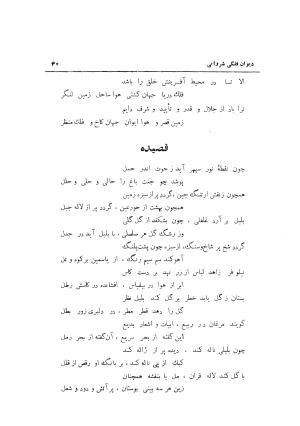 دیوان فلکی شروانی ۴۰
الا تا در محیط آفرینش خلق را باشد
فلک دریا جهان کشتی هوا ساحل زمین لنگر
ترا باد از جلال و قدر و تأیید و شرف دایم
زمین قصر و هوا ایوان جهان کاخ و فلک منظر
قصیده
چون نقطهٔ نور سپهر آید ز حوت اندر حمل
پوشد چو جنت باغ را حالی و حلی و حلل
همچون ز نقش ارتنگ چین، گردد پر از سبزه زمین
همچون بهشت از حورعین، گردد پر از لاله جبل
بلبل بر آرد غلغلی، چون بشکفد از گل گلی
وز رشک گل هر صلصلی، با بلبل آید در جدل
گردد شخ پر شاخ و سنگ، از سبزه چون پشت پلنگ
آهو کند سم سیم رنگ، از یاسمین بر کوه و تل
نیلوفر زاهد لباس از زر نهد بر دست کاس
ابر از هوا در بی‌قیاس، افشانده در کامش رطل
بستان ز گل یابد خطر بر گل کند بلبل نظر
گل را رهد قطر مطر، در دلبری زور بطل
گویند مرغان در ربیع، ابیات و اشعار بدیع
این گفته از بحر سریع، آن گفته از بحر رمل
چون بلبلی ناله کند، دیده پر از ژاله کند
کبک از پی ناله کند، بر بانگ او رقص از قلل
با گل کند لاله قران، مل با بنفشه همچنان
زین هر سه بینی بوستان، پر آتش و دود و شعل